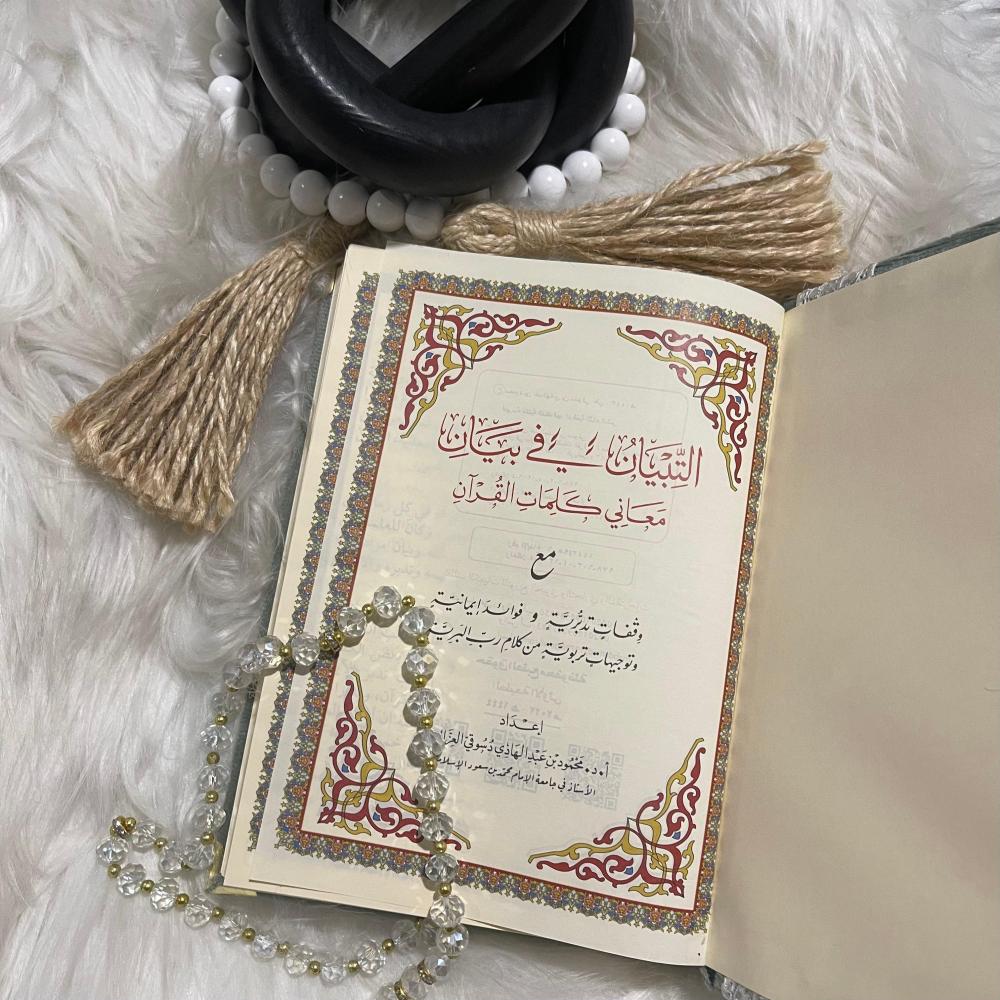 التِّبْيَانُ فِي بَيَانِ
مَعَانِي كَلِمَاتِ القُرْآنِ
مع
وقفات تدبُّريَّة و فوائد إيمانيَّة
وتوجيهات تربويَّة من كلام ربّ البريَّة
إعْدَاد
أ.د. محمود بن عبد الهادي دسوقي
الأستاذ في جامعة الإمام محمد بن سعود